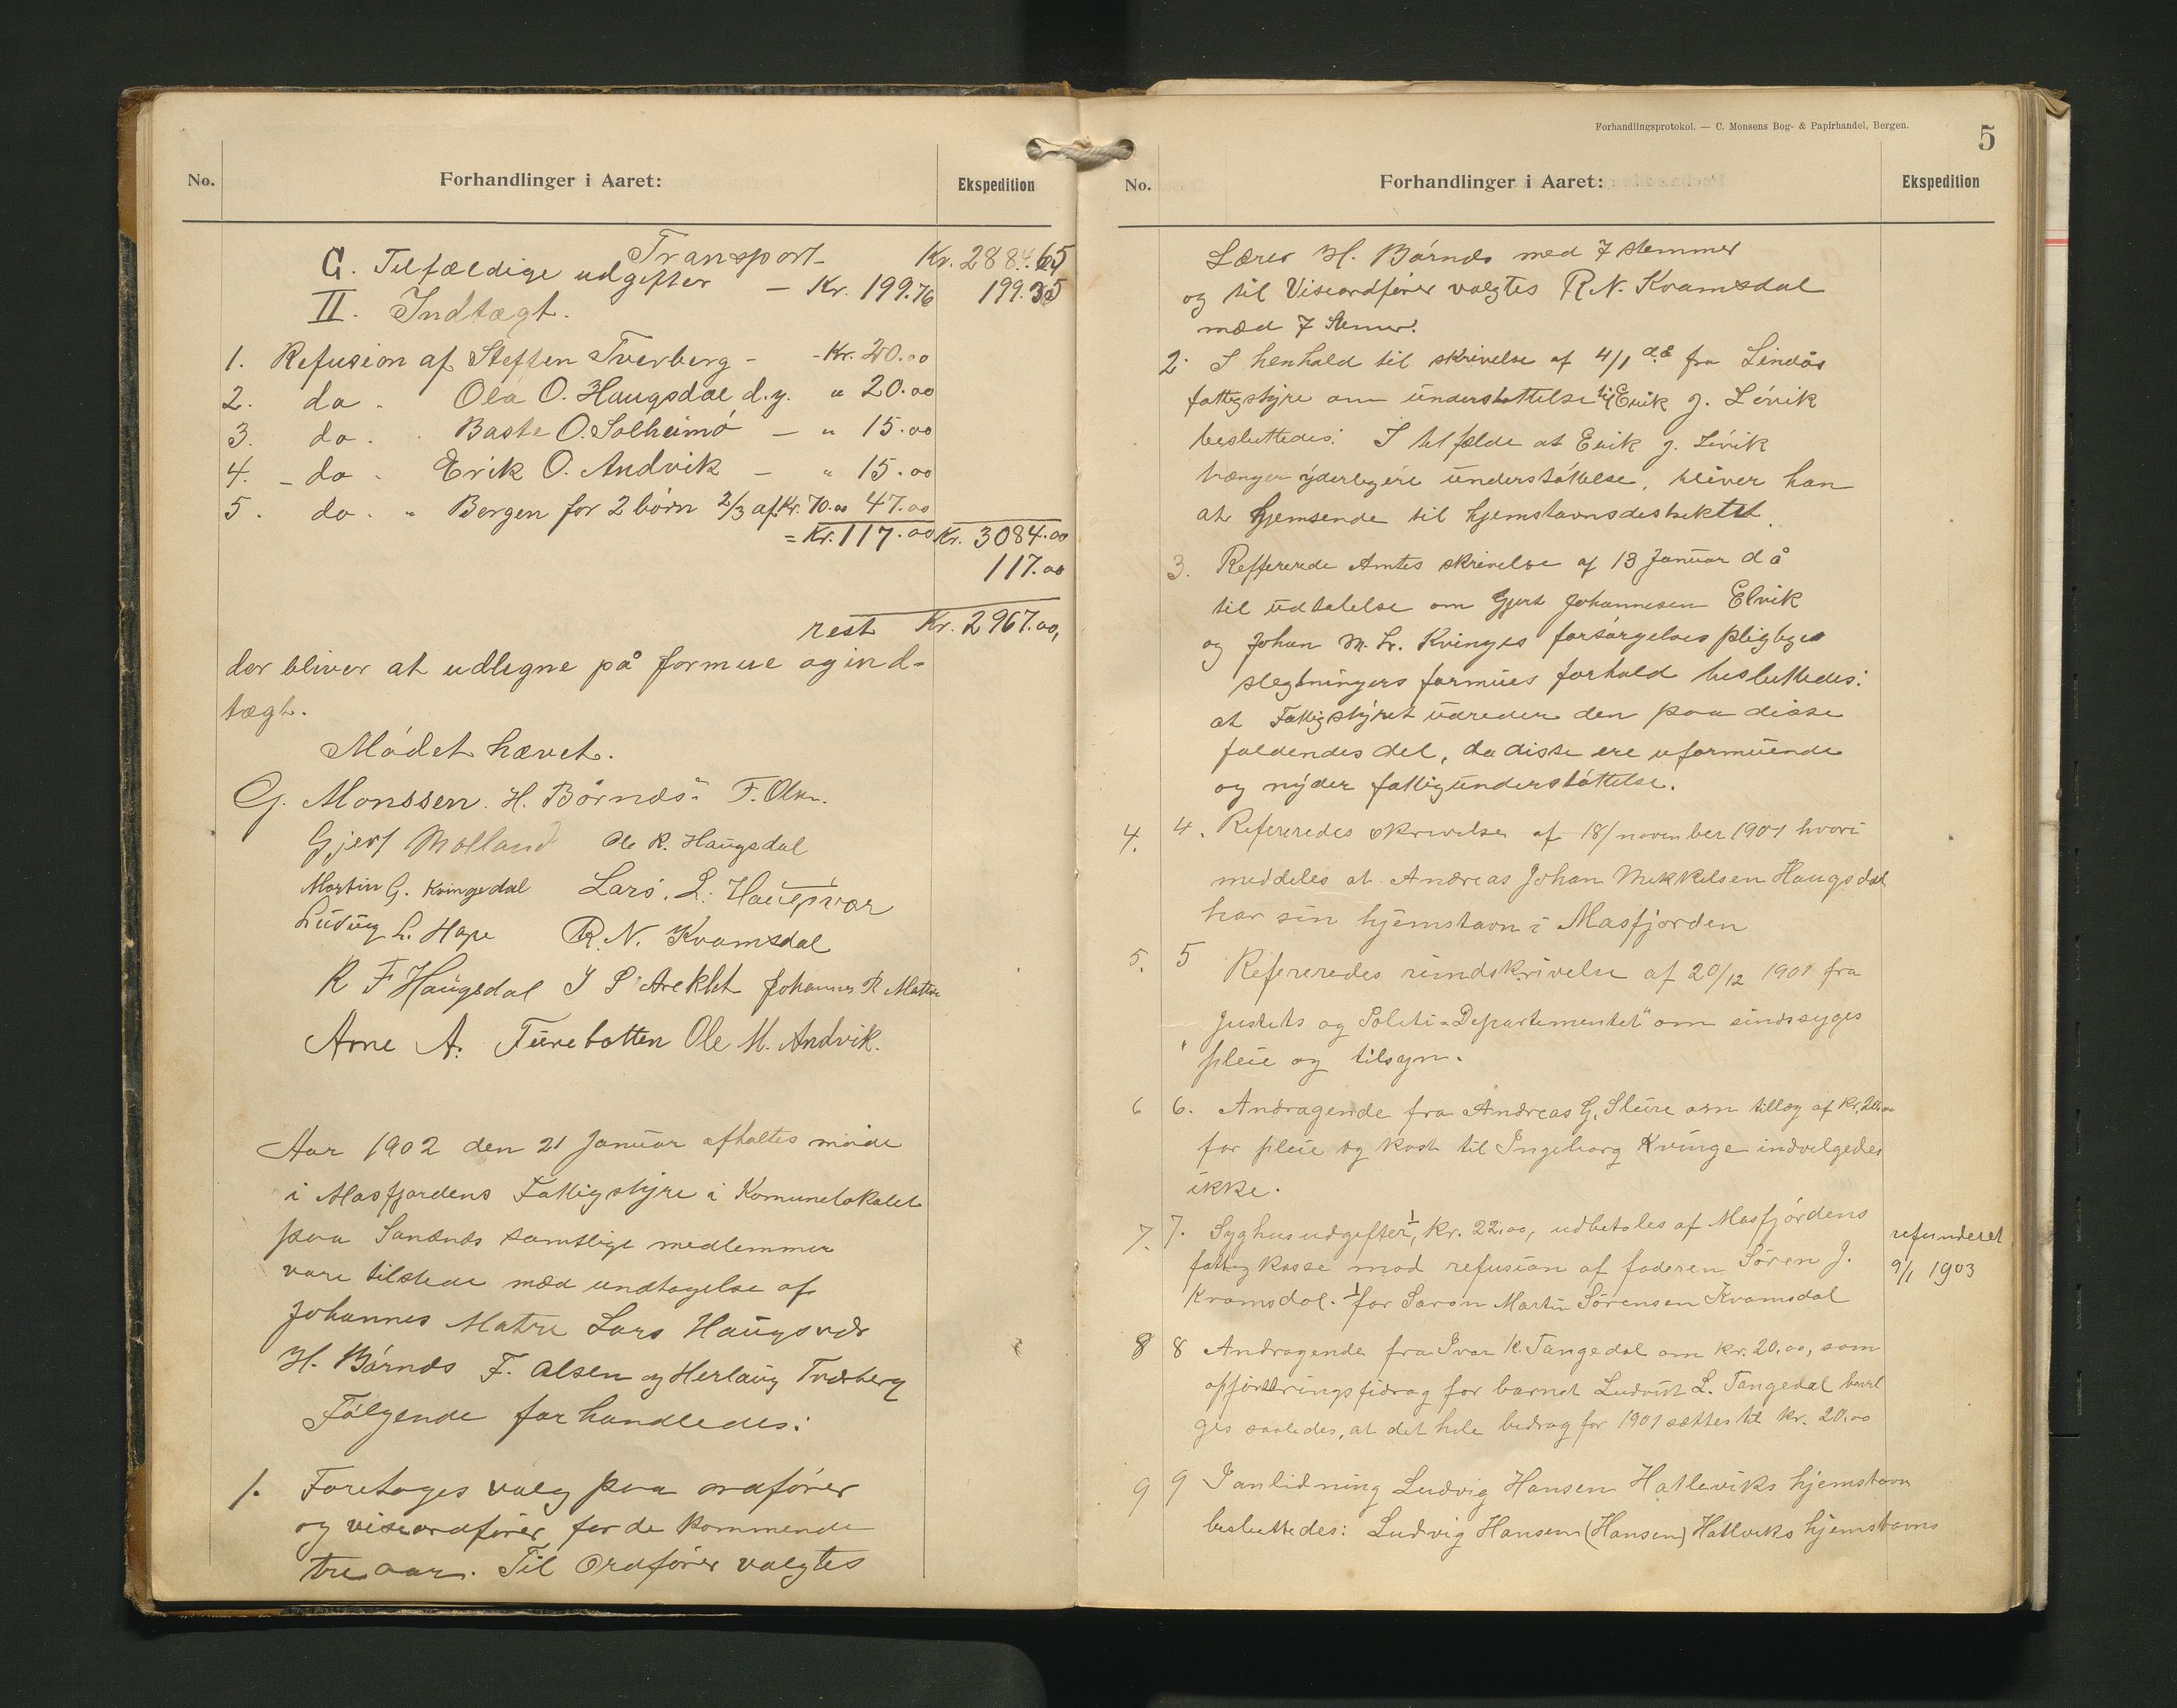 No.
Forhandlinger i Aaret:
Ekspedition
Transport - Kr. 2884.65
G. Tilfældige udgifter - Kr. 199.76 199.35
II. Indtægt.
1. Refusion af Steffen Tverberg - - Kr. 20.00
2. do. Ola O. Haugsdal d.y. " 20.00
3. do. Baste O. Solheimö - " 15.00
4. - do. Erik O. Andvik - " 15.00
5. do. " Bergen for 2 börn 2/3 af Kr. 70.00 47.00
= Kr. 117.00 Kr. 3084.00
117.00
rest Kr. 2967.00,
der bliver at udligne på formue og ind-
tægt.
Mödet hævet.
G. Monssen. H. Börnds F. Olsen.
Gjert Molland Ole R. Haugsdal
Martin G. Kvingedal Lars. L. Haugsvær
Ludvig L. Hope R. N. Kvamsdal
R F Haugsdal I P Areklet Johannes R Matre
Arne A. Furebotten Ole M. Andvik.
Aar 1902 den 21 Januar afholtes möde
i Masfjordens Fattigstyre i Komunelokalet
paa Sandnds samtlige medlemmer
vare tilstede med undtagelse af
Johannes Matre Lars Haugsvdr
H. Börnds F. Olsen og Herlaug Tvdrberg
Fölgende forhandledes:
1. Foretoges valg paa ordförer
og viseordförer for de kommende
tre aar. Til Ordförer valgtes
Forhandlingsprotokol. — C. Monsens Bog- & Papirhandel, Bergen.
5
No.
Forhandlinger i Aaret:
Ekspedition
Lærer H. Börnds med 7 stemmer
og til Viseordförer valgtes R.N. Kvamsdal
med 7 Stemer.
2. I henhold til skrivelse af 4/1 d.å fra Lindås
fattigstyre om understöttelse til Erik J. Lövik
besluttedes: I tilfælde at Erik J. Lövik
trænger yderligere understöttelse, bliver han
at hjemsende til hjemstavnsdestriktet.
3. Reffererede Amtes skrivelse af 13 Januar d å
til udtalelse om Gjert Johannesen Elvik
og Johan M. Lr. Kvinges forsörgelses pligtige
slegtningers formues forhold besluttedes:
at Fattigstyret udreder den paa disse
faldendes del, da disse ere uformuende
og nyder fattigunderstöttelse.
4. 4. Refereredes skrivelse af 18/november 1901 hvori
meddeles at Andreas Johan Mikkelsen Haugsdal
har sin hjemstavn i Masfjorden
5. 5 Refereredes rundskrivelse af 20/12 1901 fra
Justits og Politi-Departementet" om sindssyges
" pleie og tilsyn.
6 6. Andragende fra Andreas G. Sleire om tillæg af Kr. 20.00
for pleie og kost til Ingeborg Kvinge indvilgedes
ikke.
7. 7. Syghusudgifter, Kr. 22.00, udbetales af Masfjördens
fattigkasse mod refusion af faderen Sören J.
Kvamsdal. for Sören Martin Sörensen Kvamsdal
refunderet
9/1 1903
8 8 Andragende fra Ivar K. Tangedal om Kr. 20.00, som
opföstringsbidrag for barnet Ludvik L. Tangedal bevil
ges saaledes, at det hele bidrag for 1901 sættes til Kr. 20.00
9 9 I anlidning Ludvig Hansen Hatleviks hjemstavn
besluttedes: Ludvig Hansen (Hansen) Hatleviks hjemstavns